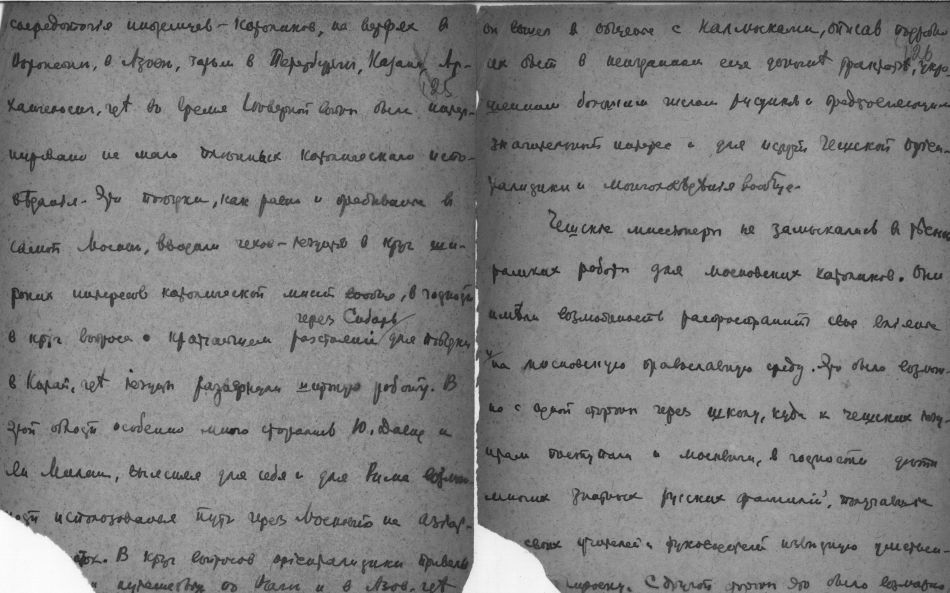 средоточія иноземцев – католиков, на верфях в
Воронеже, в Азове, затем в Петербурге, Казани, Ар-
125
хангельске, гдѣ во время Сѣверной войны было
не мало плѣнных католическаго испо-
вѣданія. Эти поѣздки, как равно и пребываніе в
самой Москве, вводили чехов – іезуитов в круг ши-
роких интересов католической миссіи вообще, в частности
через Сибирь
в круг вопроса о кратчайшем разстояніи для поѣздки
в Китай, гдѣ іезуиты развернули работу. В
этой области особенно много старались Ю. Давид и
Милан, для себя и для Рима
использованія пути через Московію на
В круг вопросов оріенталистики привели
путешествія по и в Азов, гдѣ
он вошел в общеніе с Калмыками, описав подробно
126
их быт в неизданном еще доныне трактате, укра-
шенном большим числом рисунков и представляющим
значительный интерес и для исторіи Чешской оріен-
талистики и монголовѣдѣнія вообще.
Чешскіе миссіонеры не замыкались в тѣсные
рамках работы для московских католиков. Они
имѣли возможность распространить свое вліяніе
и на московскую православную среду. Это было возмож-
но с одной стороны через школу, куда к чешским іезу-
итам поступали и москвичи, в частности дѣти
многих знатных русских фамилій,
своих учителей и руководителей
С другой стороны это было возможно